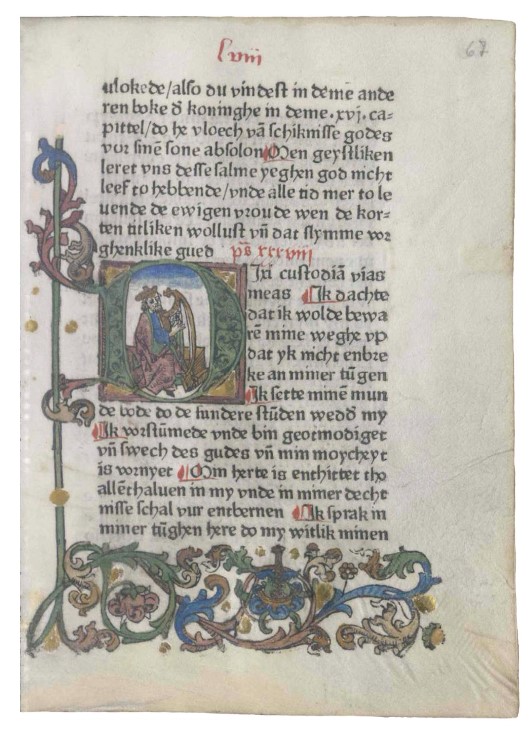 lviii
67
vlokede/also du vindest in deme ande
ren boke đ koninghe in deme .xvj. ca-
pittel/do he vloech vā schiknisse godes
vor sinē sone absolon Men geystliken
leret vns desse salme yeghen god nicht
leef to hebbende/vnde alle tid mer to le
uende de ewigen vroude wen de kor-
ten titliken wollust vn̄ dat slymme vor
ghenklike gued ps xxxviij
Dixi custodiā vias
meas Ik dachte
dat ik wolde bewa
rē mine weghe vp
dat yk nicht enbre
ke an miner tūgen
Ik sette minē mun
de bode do de sundere stūden wedđ my
Ik vorstūmede vnde bin geotmodiget
vn̄ swech des gudes vn̄ min moycheyt
is vornyet Min herte is enthittet tho
allēthaluen in my vnde in miner decht
nisse schal vur entbernen Ik sprak in
miner tūghen here do my witlik minen